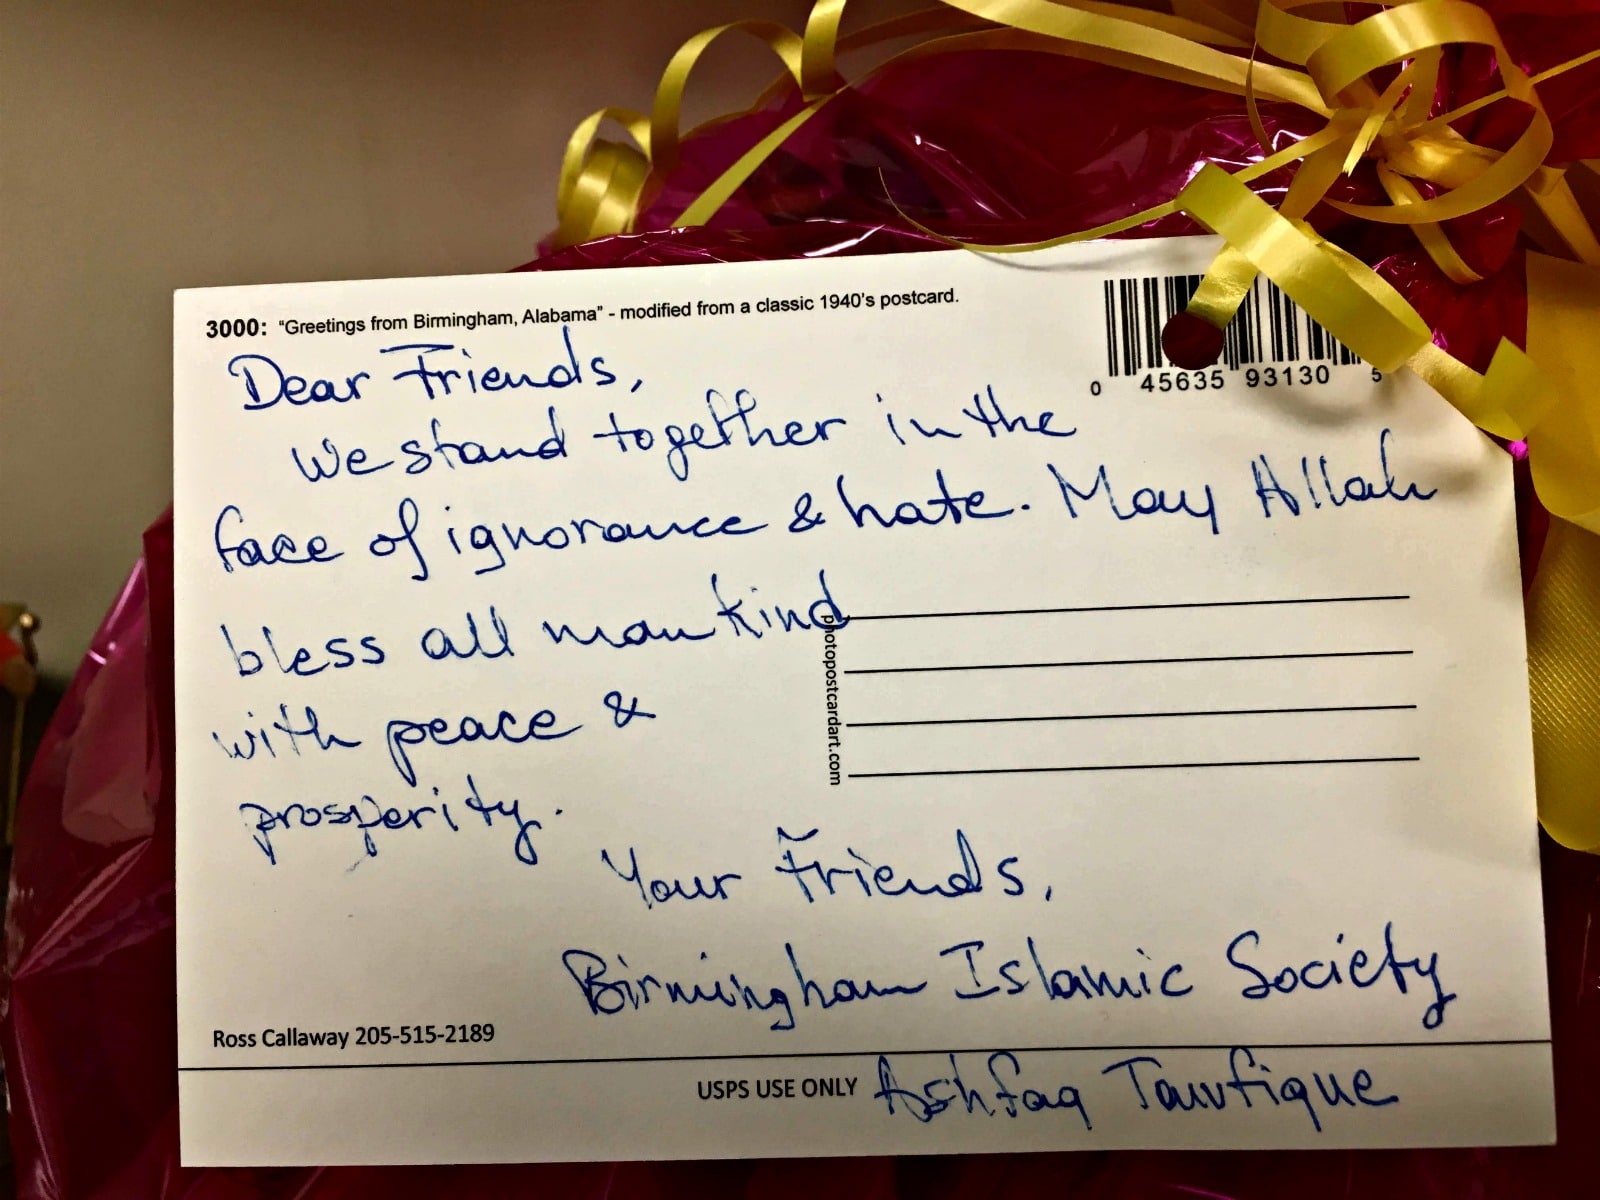 3000: "Greetings from Birmingham, Alabama" - modified from a classic 1940's postcard.
0 45635 93130 5
Dear Friends,
We stand together in the
face of ignorance & hate. May Allah
bless all mankind
with peace &
prosperity.
photopostcardart.com
Your Friends,
Birmingham Islamic Society
Ross Callaway 205-515-2189
USPS USE ONLY
Ashfaq Taufique